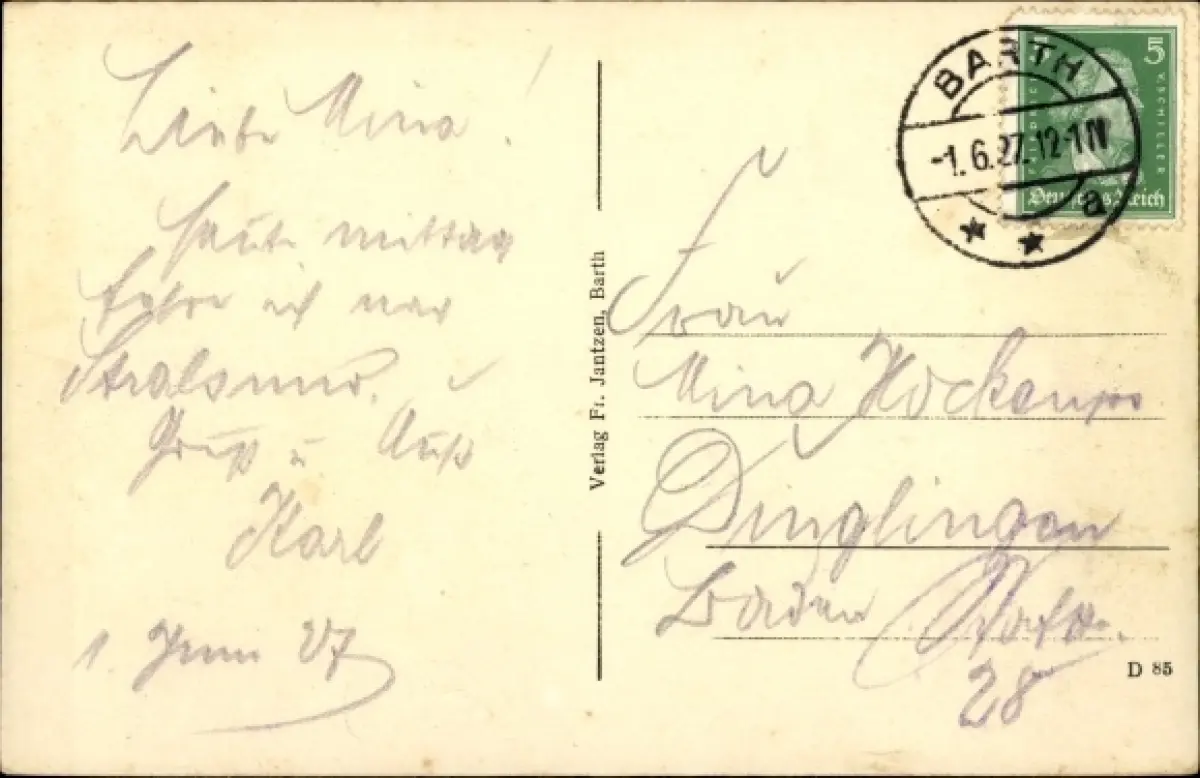 Liebe Mina!
Heute mittag
fahre ich nac
Stralsund.
Gruß u Kuß
Karl
1 Juni 27
Verlag Fr. Jantzen, Barth
BARTH
-1.6.27.12-1 N
a
5 5
FRIEDRICH V. SCHILLER
Deutsches Reich
Frau
Mina
Dinglingen
Baden
28
D 85